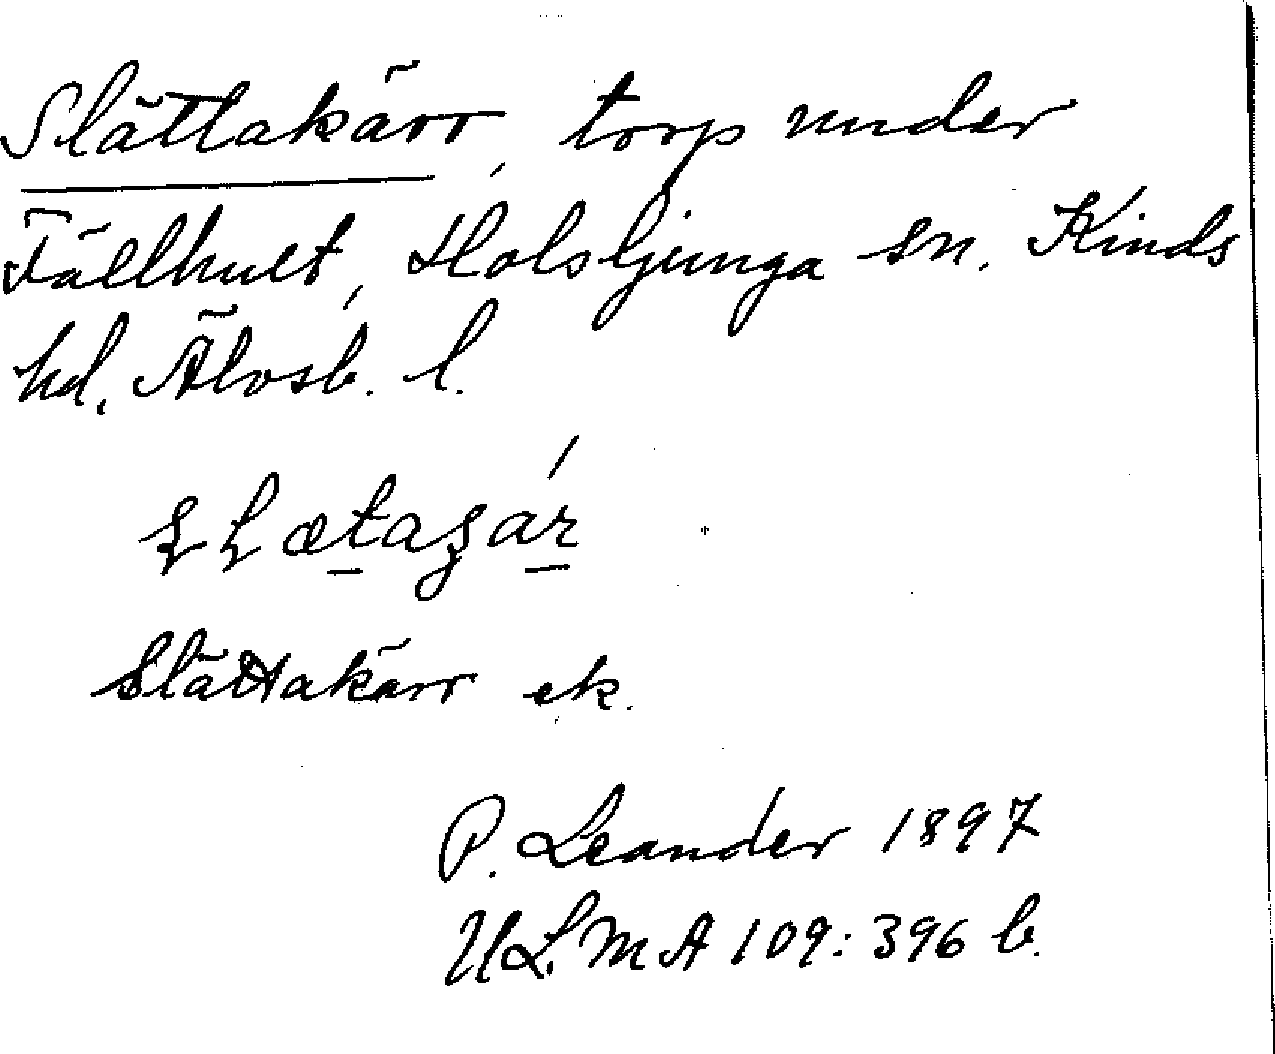 Slättakärr, torp under
Fällhult, Holsljunga sn. Kinds
hd. Älvsb. l.
Slättakärr ek.
P. Leander 1897
ULMA 109:396 b.